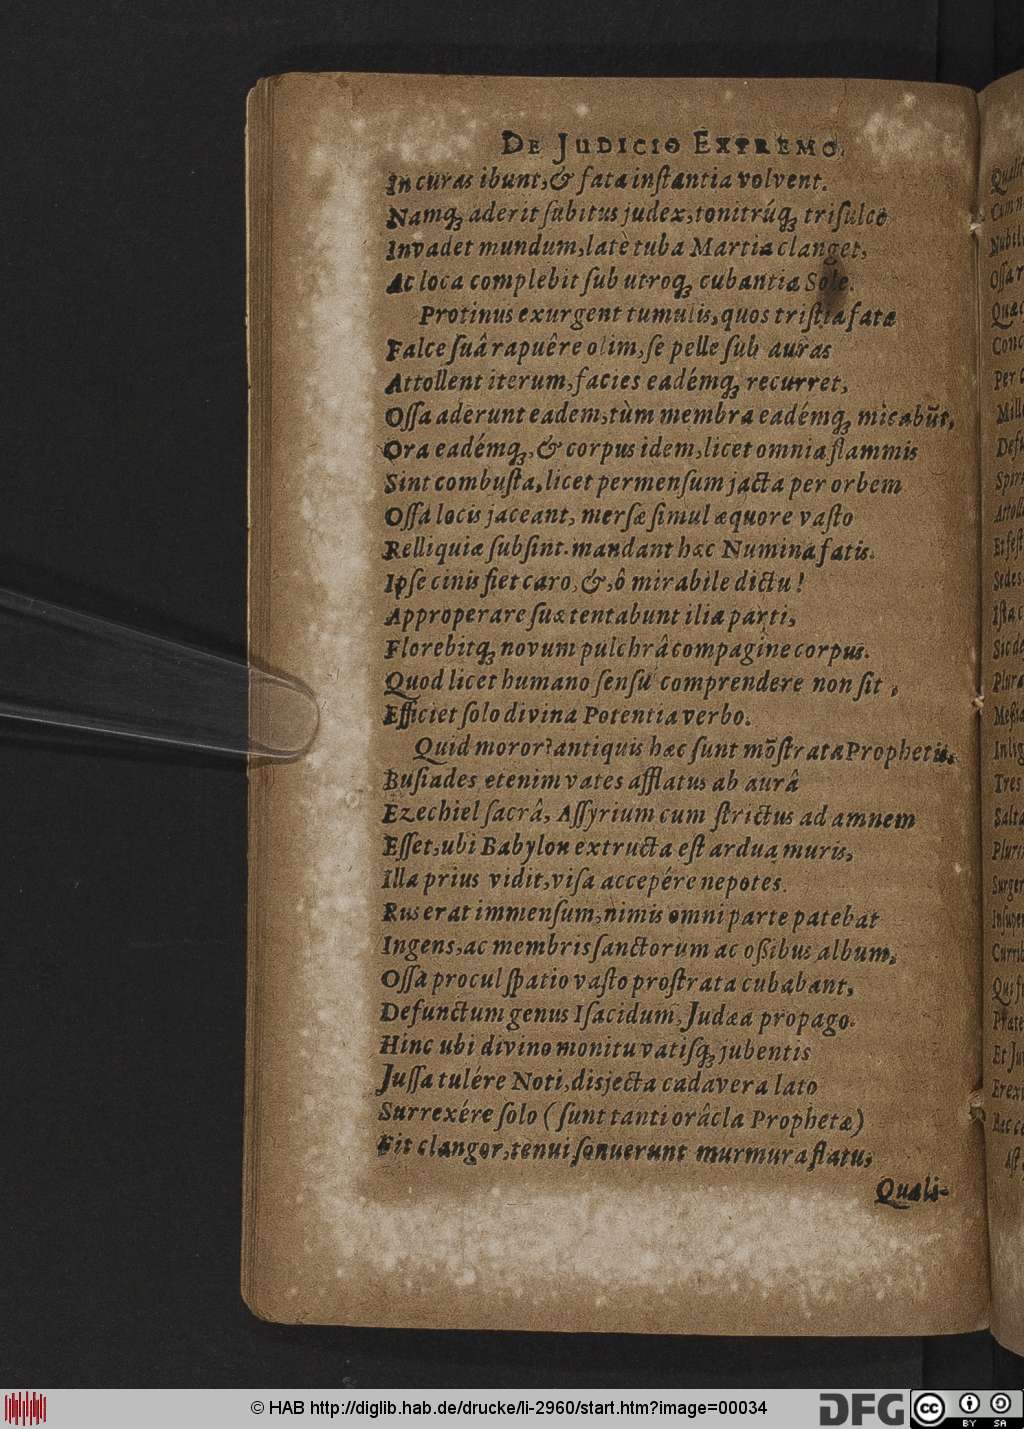 DE JUDICIO EXTREMO.
In curas ibunt, & fata inſtantia volvent.
Namq́ꝫ aderit ſubitus judex, tonitrúqꝫ triſulco
Invadet mundum, latè tuba Martia clanget,
At loca complebit ſub utroqꝫ cubantia Sole.
Protinus exurgent tumulis, quos triſtia fata
Falce ſuâ rapuêre olim, ſe pelle ſub auras
Attollent iterum, facies eadémqꝫ recurret,
Oſſa aderunt eadem, tùm membra eadémqꝫ micabūt,
Ora eadémqꝫ, & corpus idem, licet omnia flammis
Sint combuſta, licet permenſum jacta per orbem
Oſſa locis jaceant, merſæ ſimul æquore vaſto
Relliquiæ ſubſint. mandant hæc Numina fatis.
Ipſe cinis fiet caro, &, ô mirabile dictu!
Approperare ſuæ tentabunt ilia parti,
Florebitqꝫ novum pulchrâ compagine corpus.
Quod licet humano ſenſu comprendere non ſit,
Efficiet ſolo divina Potentia verbo.
Quid moror? antiquis hæc ſunt mōſtrata Prophetis.
Buſiades etenim vates afflatus ab aurâ
Ezechiel ſacrâ, Aſſyrium cum ſtrictus ad amnem
Eſſet, ubi Babylon extructa eſt ardua muris,
Illa prius vidit, viſa accepére nepotes.
Rus erat immenſum, nimis omni parte patebat
Ingens, ac membris ſanctorum ac oſſibus album,
Oſſa procul ſpatio vaſto proſtrata cubabant,
Defunctum genus Iſacidum, Judæa propago.
Hinc ubi divino monitu vatiſqꝫ jubentis
Juſſa tulére Noti, disjecta cadavera lato
Surrexére ſolo (ſunt tanti orâcla Prophetæ)
Fit clangor, tenui ſonuerunt murmura flatu,
Quali-
© HAB http://diglib.hab.de/drucke/li-2960/start.htm?image=00034
DFG
cc
BY SA